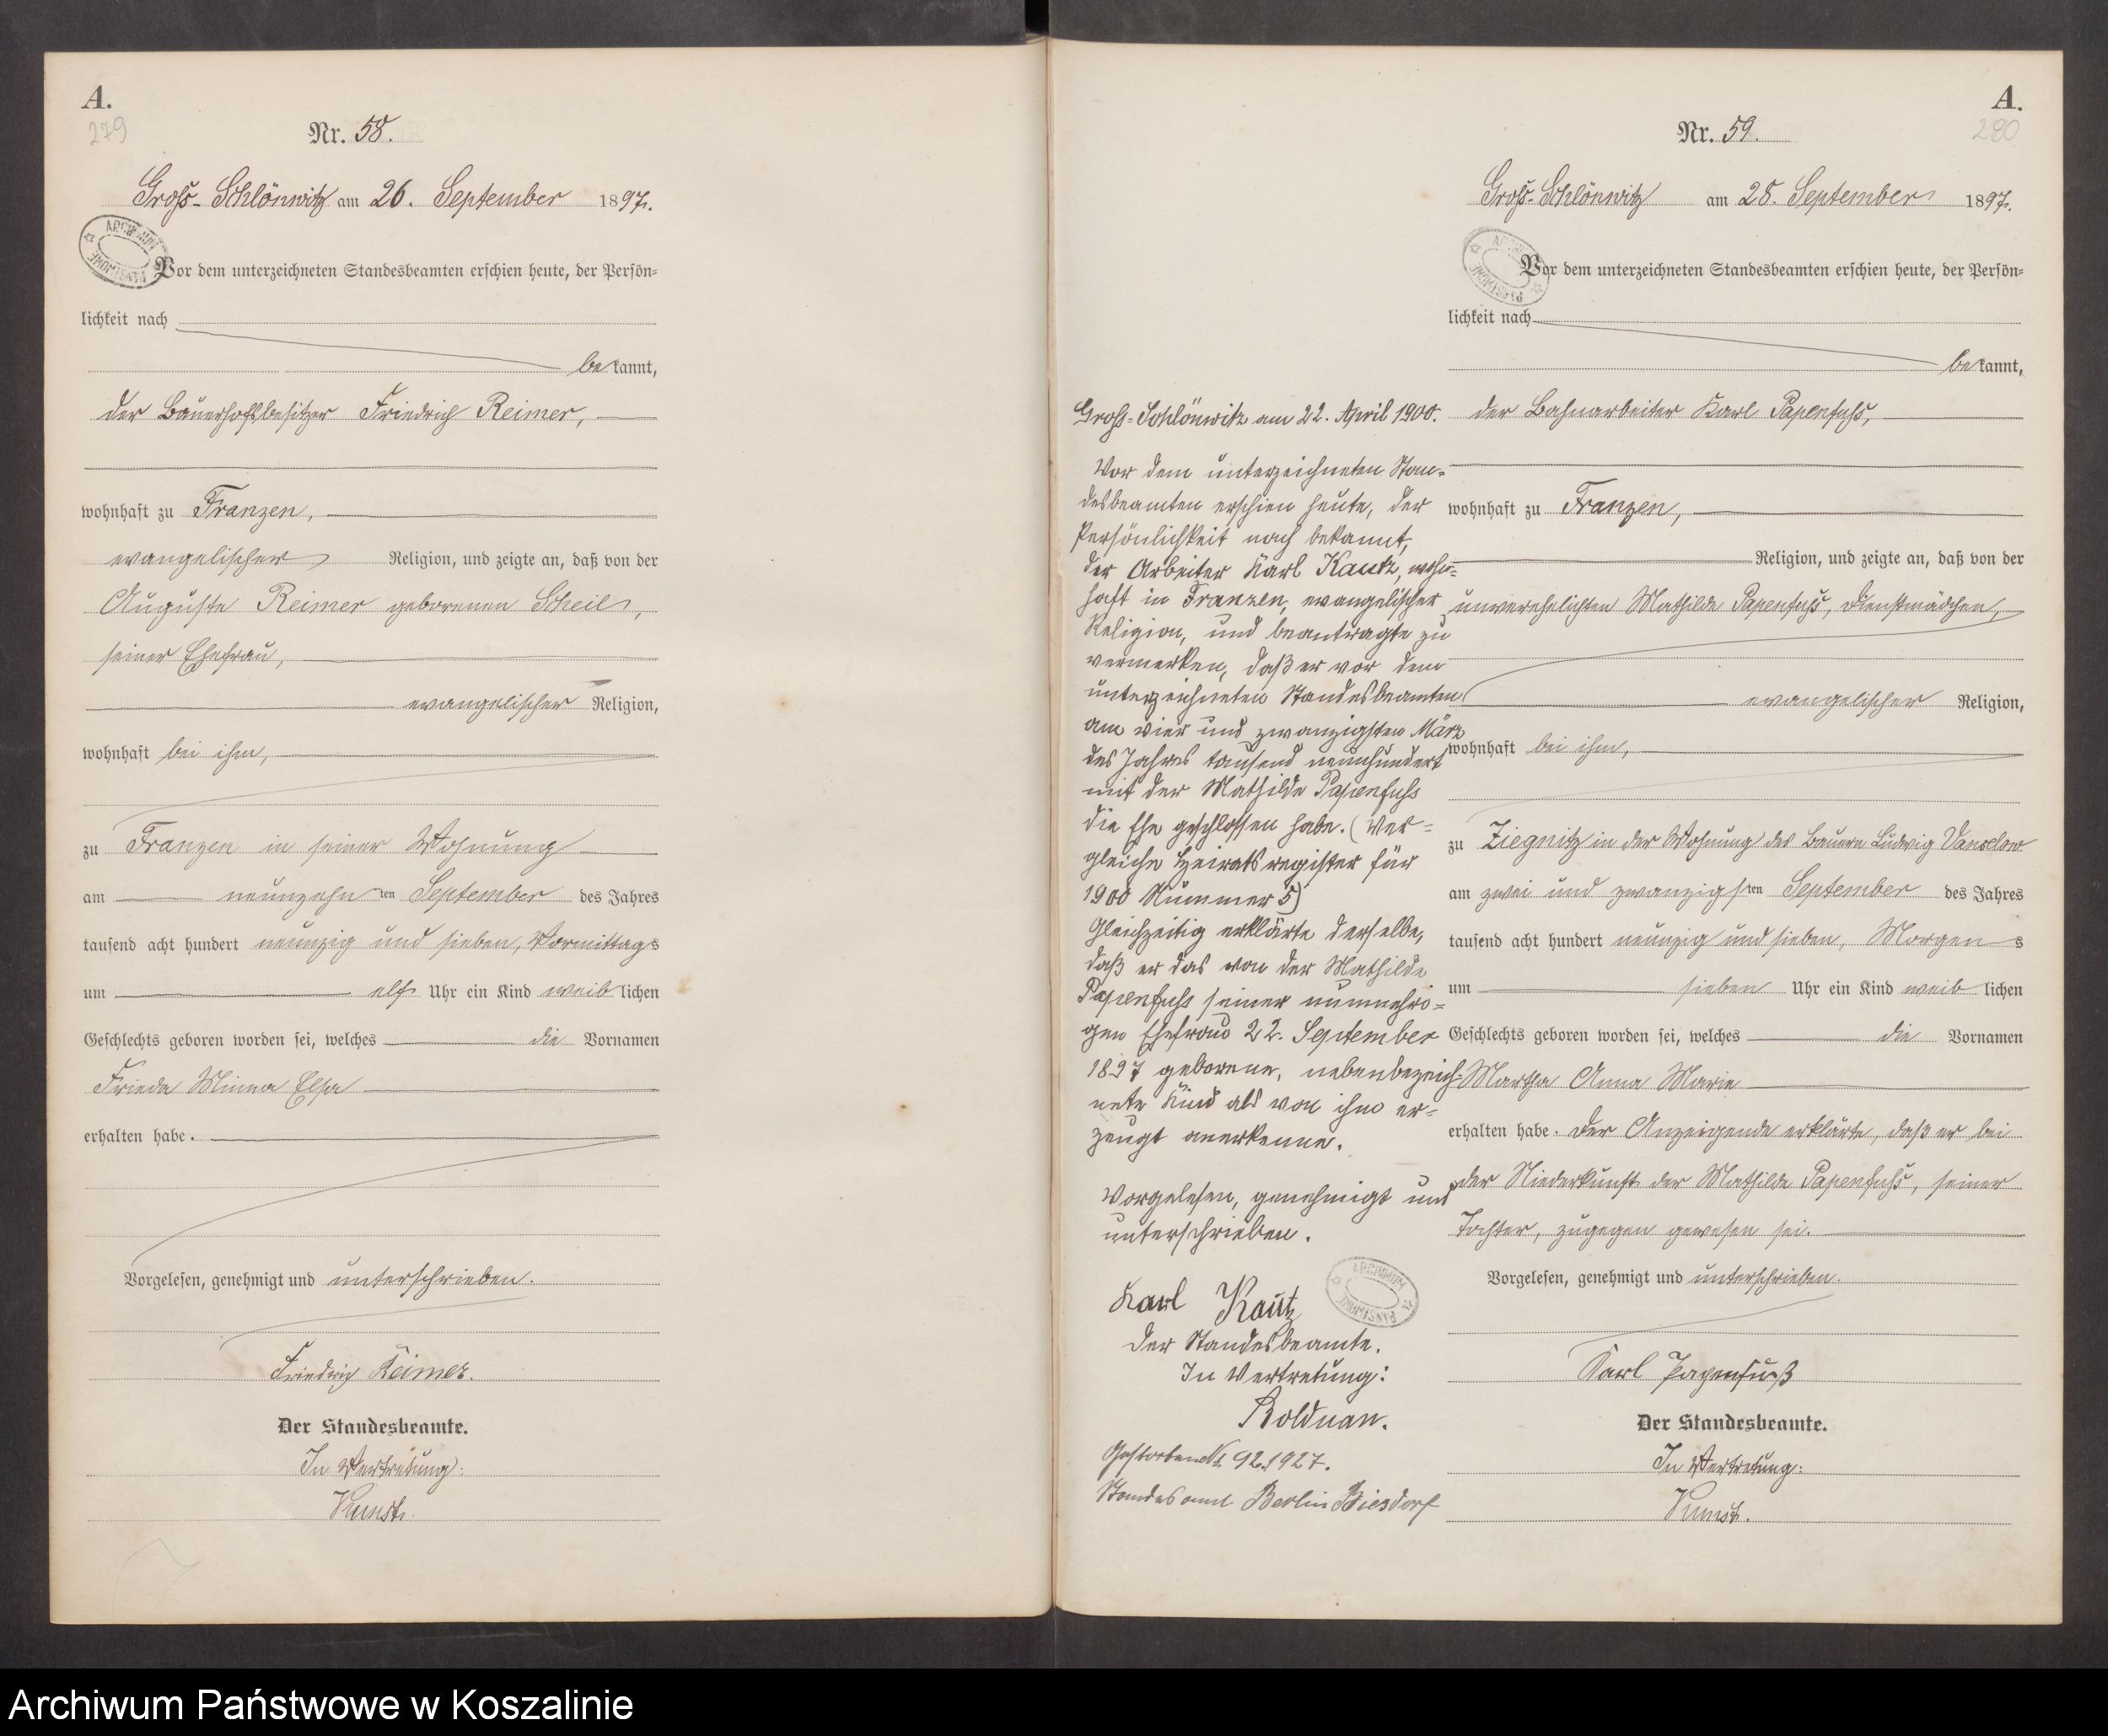 A.
279
Nr. 58.
Groß-Schlönwitz am 26. September 1897.
Vor dem unterzeichneten Standesbeamten erschien heute, der Persön=
lichkeit nach
bekannt,
der Bauerhofsbesitzer Friedrich Reimer,
wohnhaft zu Franzen,
evangelischer Religion, und zeigte an, daß von der
Auguste Reimer geborenen Scheil,
seiner Ehefrau,
evangelischer Religion,
wohnhaft bei ihm,
zu Franzen in seiner Wohnung
am neunzehnten September des Jahres
tausend acht hundert neunzig und sieben, Vormittags
um elf Uhr ein Kind weiblichen
Geschlechts geboren worden sei, welches die Vornamen
Frieda Minna Elsa
erhalten habe.
Vorgelesen, genehmigt und unterschrieben.
Friedrich Reimer.
Der Standesbeamte.
In Vertretung:
Kunst.
A.
280
Nr. 59.
Groß-Schlönwitz am 28. September 1897.
Vor dem unterzeichneten Standesbeamten erschien heute, der Persön=
lichkeit nach
bekannt,
der Bahnarbeiter Karl Papenfuß,
wohnhaft zu Franzen,
Religion, und zeigte an, daß von der
unverehelichten Mathilde Papenfuß, Dienstmädchen,
evangelischer Religion,
wohnhaft bei ihm,
zu Ziegnitz in der Wohnung des Bauern Ludwig
am zwei und zwanzigsten September des Jahres
tausend acht hundert neunzig und sieben, Morgens
um sieben Uhr ein Kind weiblichen
Geschlechts geboren worden sei, welches die Vornamen
Martha Anna Marie
erhalten habe. Der Anzeigende erklärte, daß er bei
der Niederkunft der Mathilde Papenfuß, seiner
Tochter, zugegen gewesen sei.
Vorgelesen, genehmigt und unterschrieben.
Karl Papenfuß
Der Standesbeamte.
In Vertretung:
Kunst.
Groß-Schlönwitz am 22. April 1900.
Vor dem unterzeichneten Stan=
desbeamten erschien heute, der
Persönlichkeit nach bekannt,
der Arbeiter Karl Kautz, wohn=
haft in Franzen, evangelischer
Religion, und beantragte zu
vermerken, daß er vor dem
unterzeichneten Standesbeamten
am vier und zwanzigsten März
des Jahres tausend neunhundert
mit der Mathilde Papenfuß
die Ehe geschlossen habe. (Ver=
gleiche Heiratsregister für
1900 Nummer 5)
Gleichzeitig erklärte derselbe,
daß er das von der Mathilde
Papenfuß seiner nunmehri=
gen Ehefrau 22. September
1897 geborene, nebenbezeich=
nete Kind als von ihm er=
zeugt anerkenne.
Vorgelesen, genehmigt und
unterschrieben.
Karl Kautz
Der Standesbeamte.
In Vertretung:
Bolduan.
Gestorben № 92.1927.
Standesamt Berlin Biesdorf
Archiwum Państwowe w Koszalinie